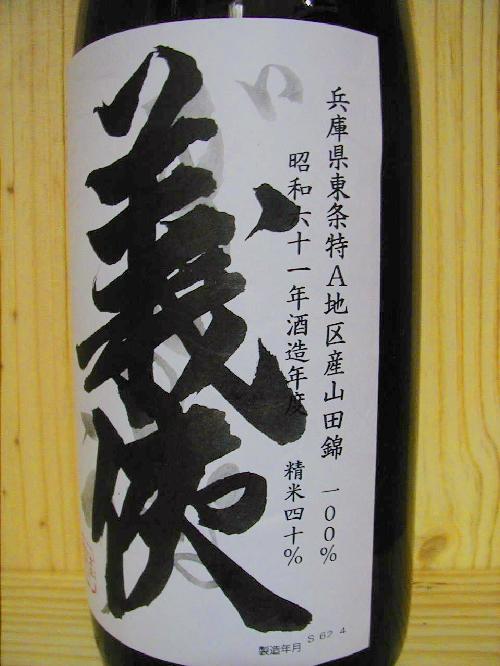 兵庫県東条特A地区産山田錦 一〇〇%
昭和六十一年酒造年度 精米四十%
義侠
製造年月 S 62 4